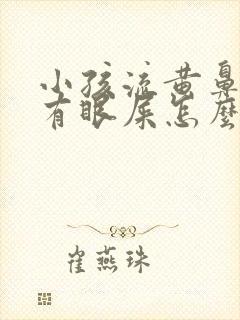 小孩流黄鼻
有眼屎怎麽
崔燕珠